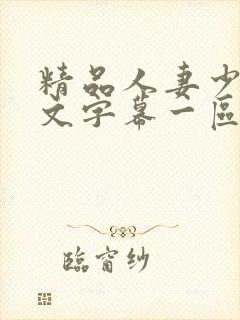 精品人妻少
文字幕一區
臨窗纱